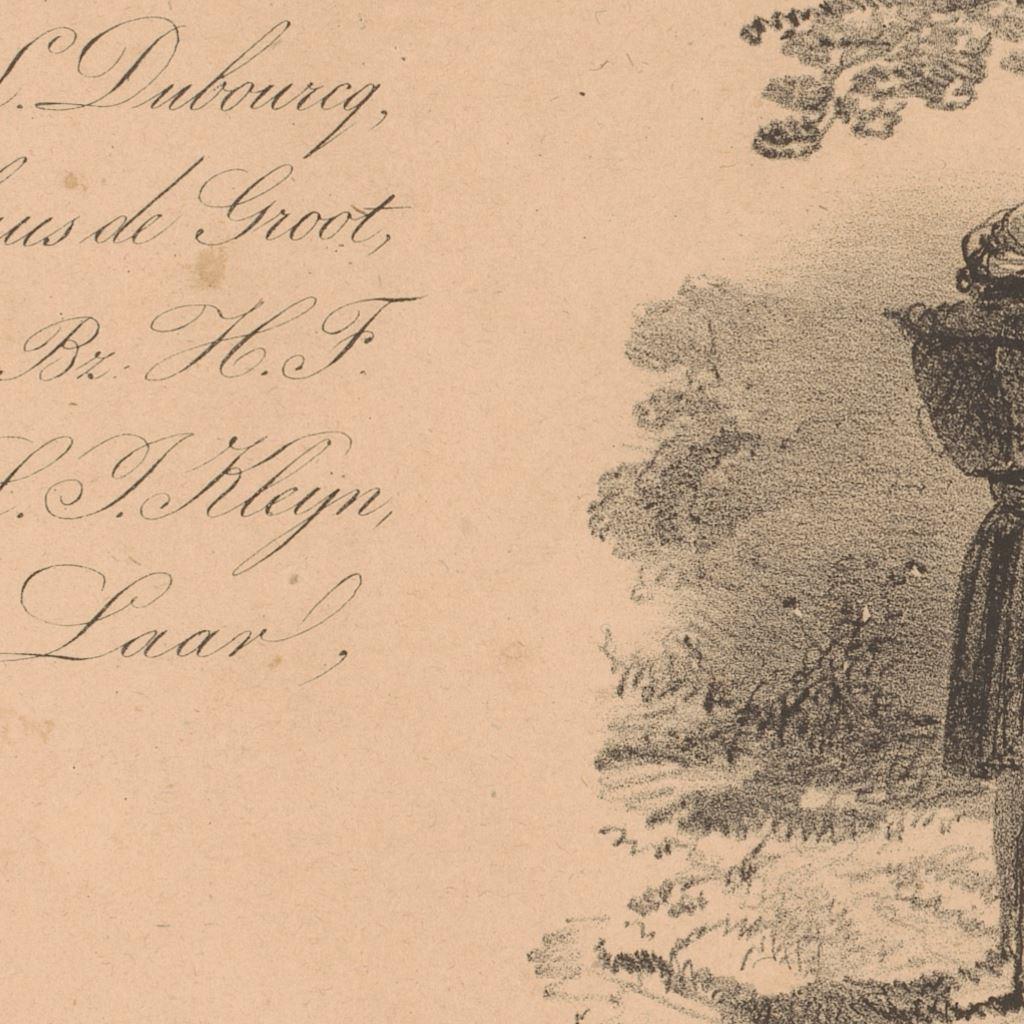 L. Dubourcq,
us de Groot,
Bz. H. F.
L. J. Kleijn,
Laar,